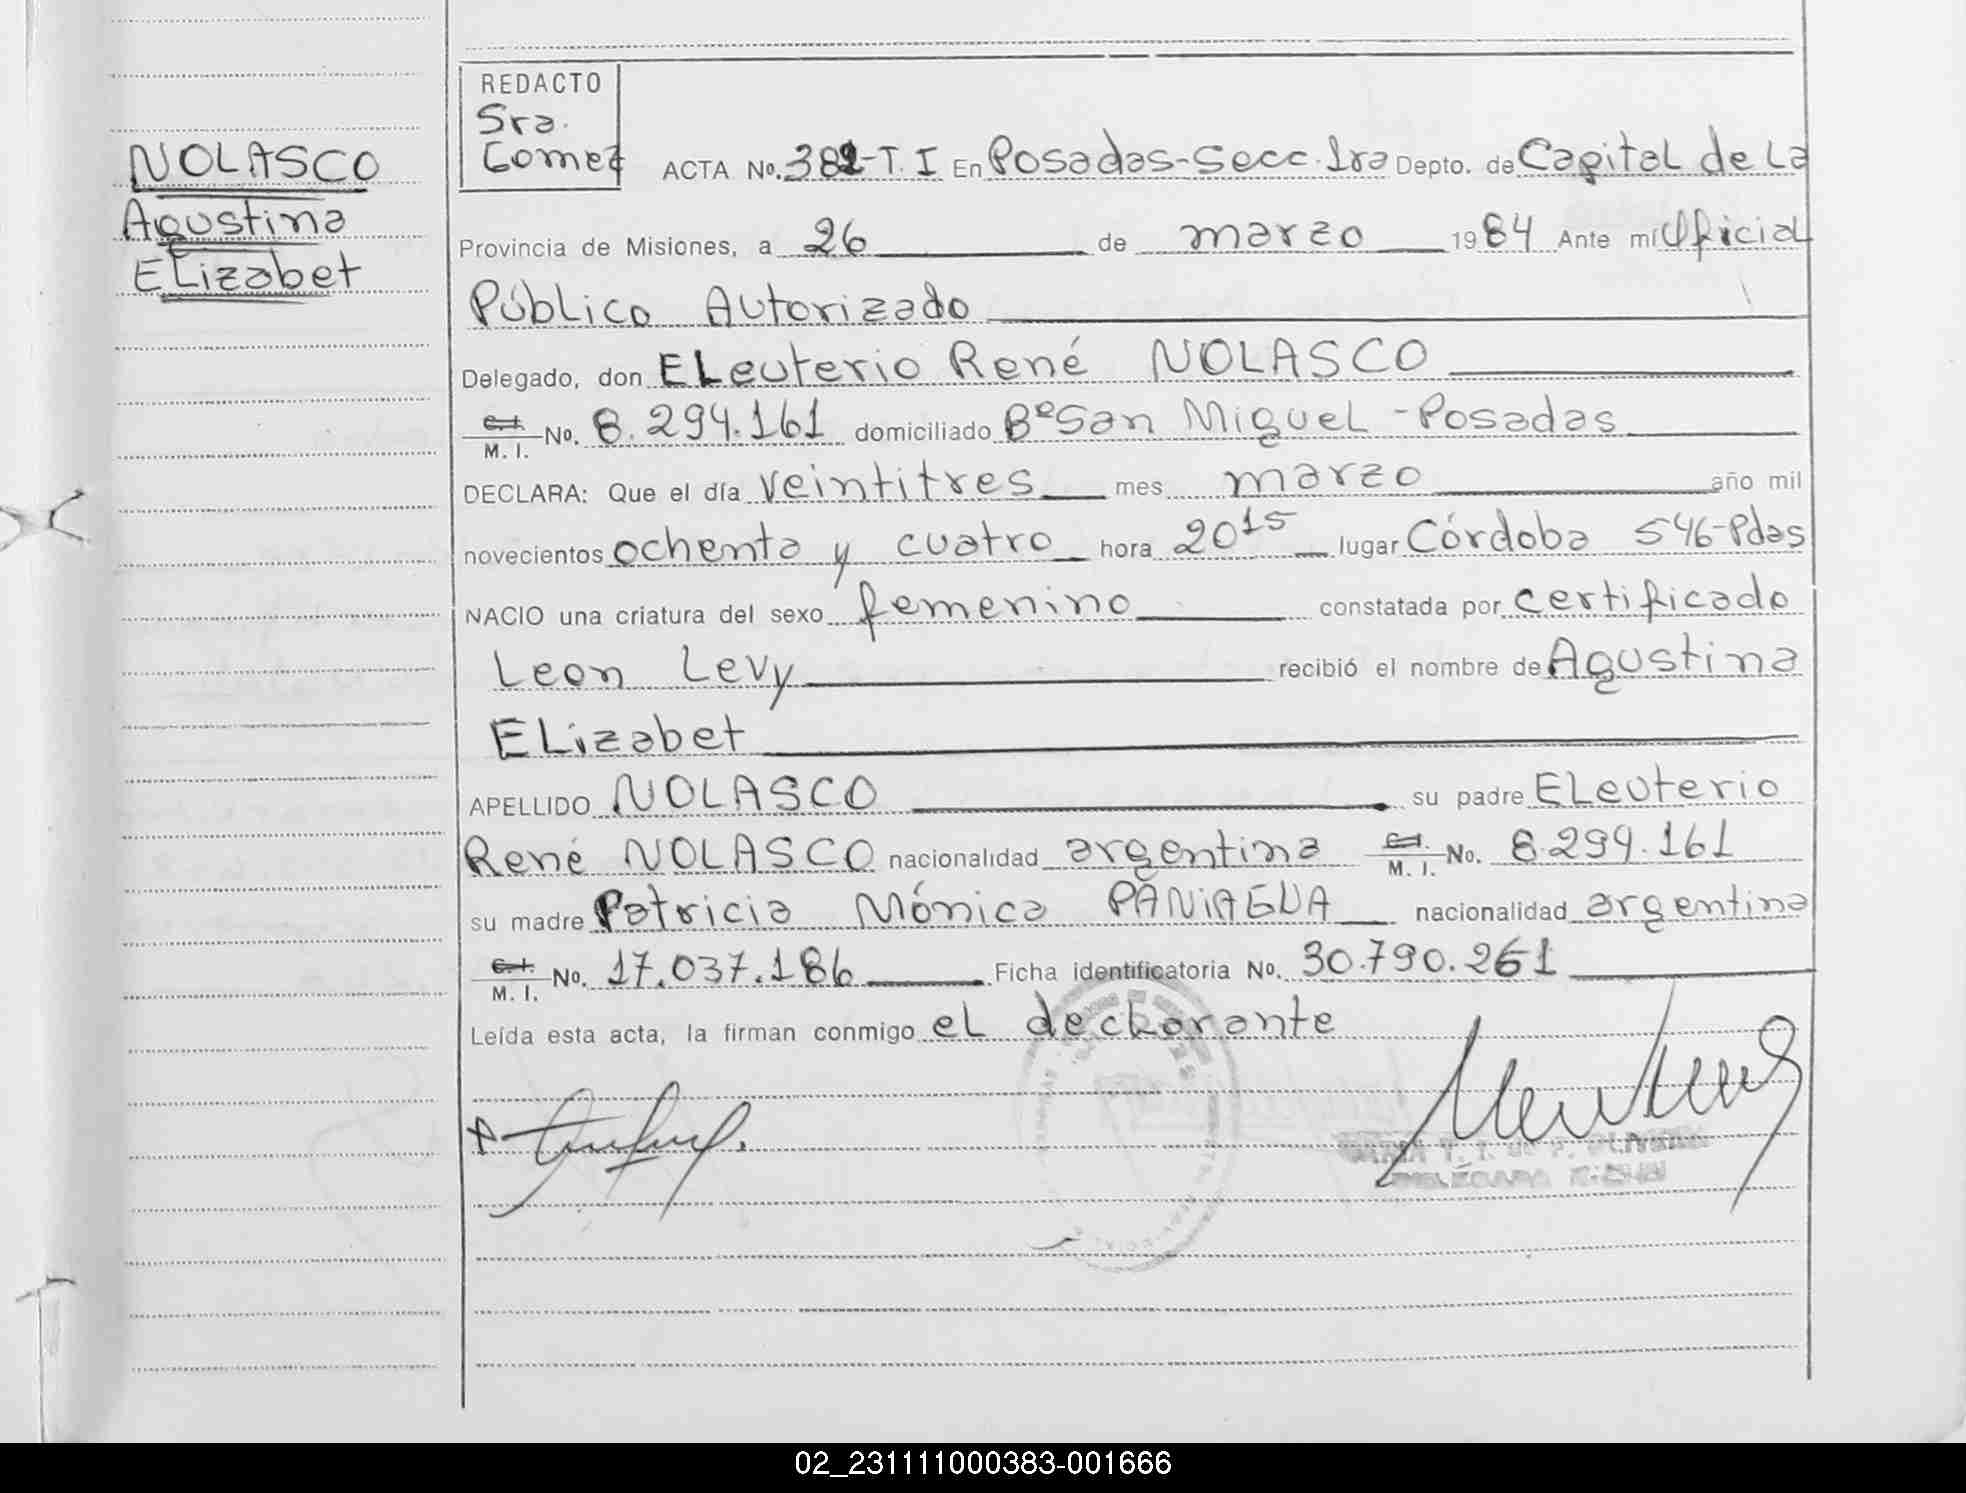 REDACTO
Sra.
Gomez
NOLASCO
Agustina
ELizabet
ACTA No. 382-T.I En Posadas-Secc.1ra Depto. de Capital de La
Provincia de Misiones, a 26 de marzo 1984 Ante mí Oficial
Público Autorizado
Delegado, don ELeuterio René NOLASCO
C.I. M.I. No. 8.294.161 domiciliado Bº San Miguel - Posadas
DECLARA: Que el día veintitres mes marzo año mil
novecientos ochenta y cuatro hora 20 15 lugar Córdoba 546-Pdas
NACIO una criatura del sexo femenino constatada por certificado
Leon Levy recibió el nombre de Agustina
ELizabet
APELLIDO NOLASCO su padre ELeuterio
René NOLASCO nacionalidad argentina C.I. M.I. No. 8.294.161
su madre Patricia Mónica PANIAGUA nacionalidad argentina
C.I. M.I. No. 17.037.186 Ficha identificatoria No. 30.790.261
Leída esta acta, la firman conmigo eL deckarante
02_231111000383-001666